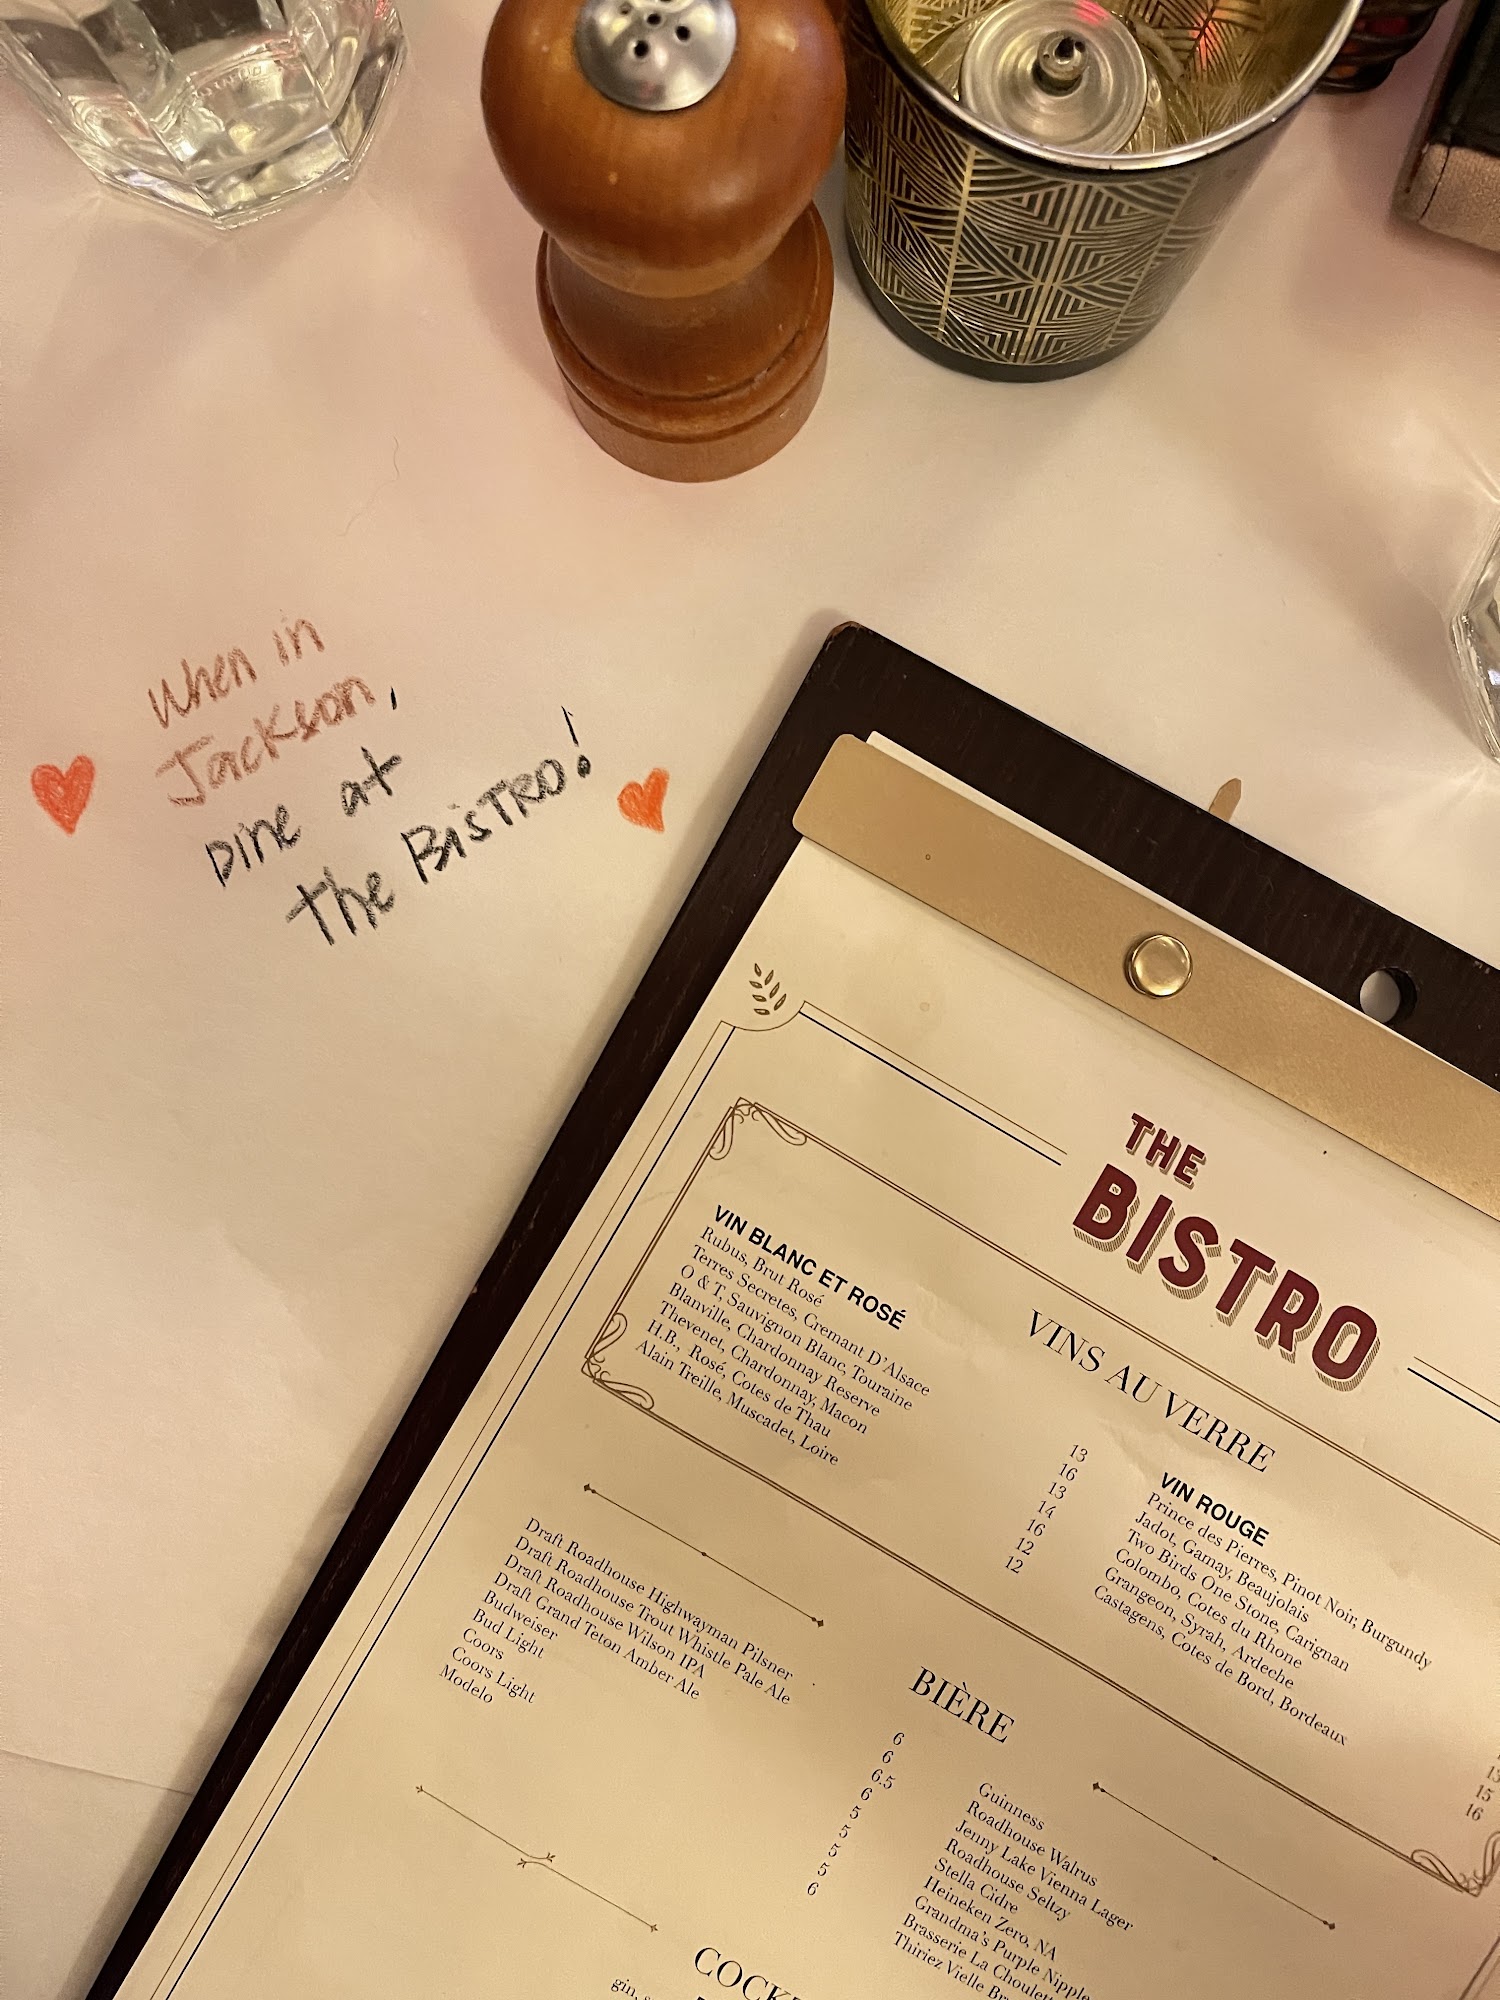 When in
Jackson,
Dine at
the BisTRO!
THE
BISTRO
VINS AU VERRE
VIN BLANC ET ROSÉ
Rubus, Brut Rosé
Terres Secretes, Cremant D'Alsace
O & T, Sauvignon Blanc, Touraine
Blanville, Chardonnay Reserve
Thevenet, Chardonnay, Macon
H.B., Rosé, Cotes de Thau
Alain Treille, Muscadet, Loire
13
16
13
14
16
12
12
VIN ROUGE
Prince des Pierres, Pinot Noir, Burgundy
Jadot, Gamay, Beaujolais
Two Birds One Stone, Carignan
Colombo, Cotes du Rhone
Grangeon, Syrah, Ardeche
Castagens, Cotes de Bord, Bordeaux
15
16
BIÈRE
Draft Roadhouse Highwayman Pilsner
Draft Roadhouse Trout Whistle Pale Ale
Draft Roadhouse Wilson IPA
Draft Grand Teton Amber Ale
Budweiser
Bud Light
Coors
Coors Light
Modelo
6
6
6.5
6
5
5
5
5
6
Guinness
Roadhouse Walrus
Jenny Lake Vienna Lager
Roadhouse Seltzy
Stella Cidre
Heineken Zero, NA
Grandma's Purple Nipple
Brasserie La Choulet
Thiriez Vielle Br
COCK
gin,